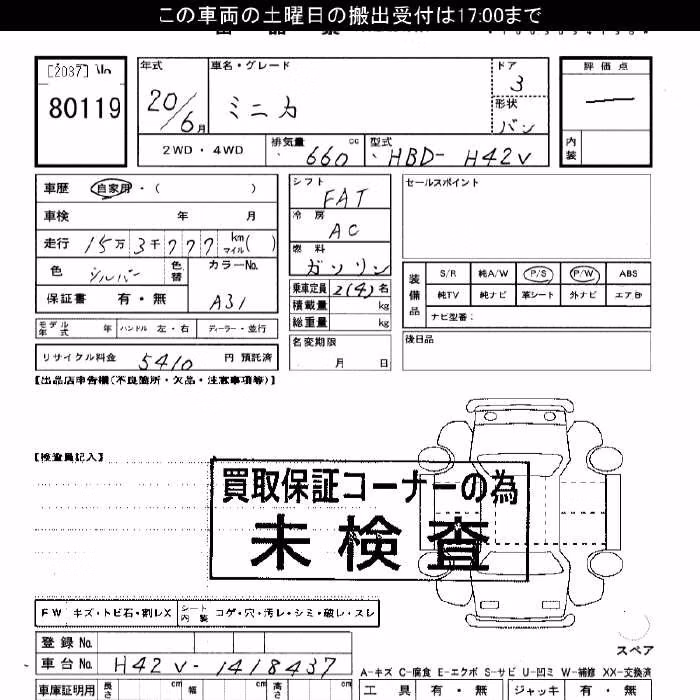 この車両の土曜日の搬出受付は17:00まで
[2037] No
80119
年式
20/6月
車名・グレード
ミニカ
ドア
3
形状
バン
評価点
内装
2WD・4WD
排気量
660 cc
型式
HBD- H42V
車歴 自家用・( )
車検 年 月
走行 15万 3千 777 km マイル( )
色 シルバー 色替
カラーNo.
A31
保証書 有・無
モデル年式 年 ハンドル 左・右 ディーラー・並行
リサイクル料金 5410 円 預託済
シフト
FAT
冷房
AC
燃料
ガソリン
乗車定員 2(4) 名
積載量 kg
総重量 kg
名変期限
月 日
セールスポイント
装備品
S/R 純A/W P/S P/W ABS
純TV 純ナビ 革シート 外ナビ エアB
ナビ型番:
後日品
【出品店申告欄(不良箇所・欠品・注意事項等)】
【検査員記入】
買取保証コーナーの為
未検査
FW キズ・トビ石・割レX シート内装 コゲ・穴・汚レ・シミ・破レ・スレ
登録No.
車台No. H42V-1418437
車庫証明用 長さ cm 幅 cm 高さ cm
スペア
A-キズ C-腐食 E-エクボ S-サビ U-凹ミ W-補修 XX-交換済
工具 有・無 ジャッキ 有・無